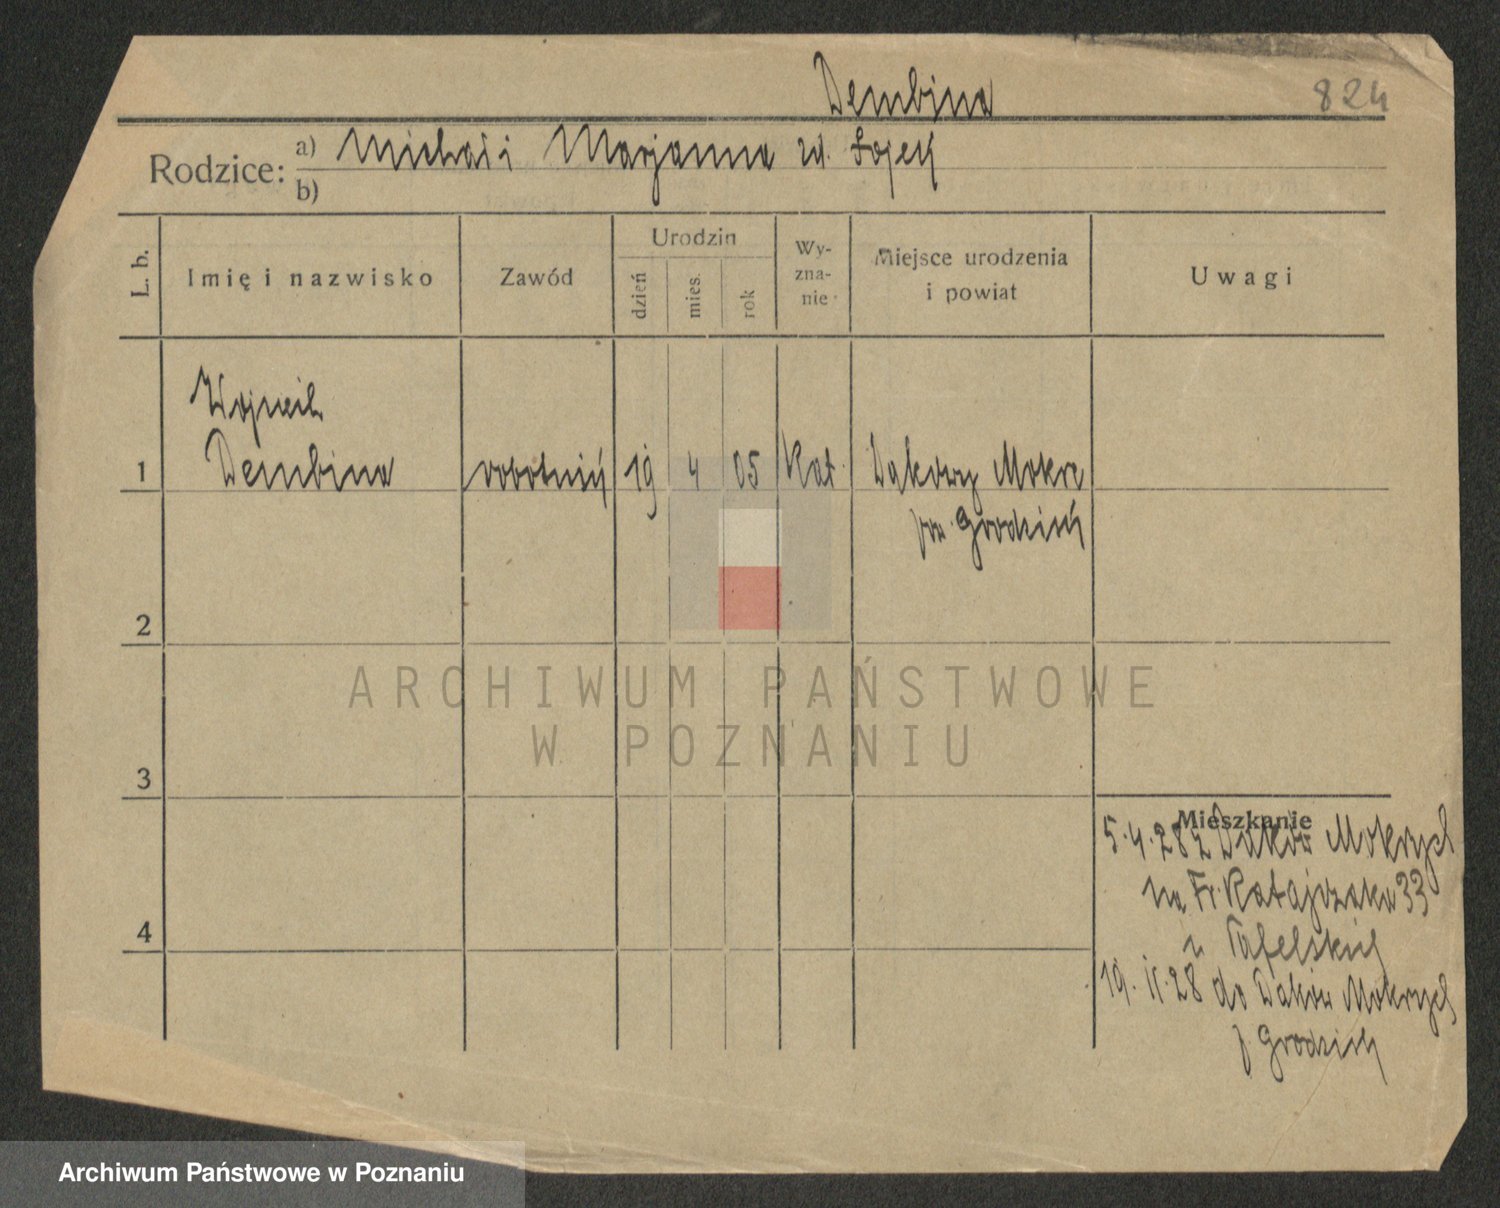 Dembina
824
Rodzice: a) Michał i Marjanna zd. Łojek
b)
L. b.
Imię i nazwisko
Zawód
Urodzin
dzień
mies.
rok
Wy-
zna-
nie
Miejsce urodzenia
i powiat
Uwagi
Wojciech
1 Dembina robotnik 19 4 05 Kat. Dakowy Mokre
pow. Grodzisk
2
3
4
Mieszkanie
5.4.28 z Daków Mokrych
na Fr. Ratajczaka 33
u Tafelskiej
19. 28 do Daków Mokrych
p Grodzisk
ARCHIWUM PAŃSTWOWE
W POZNANIU
Archiwum Państwowe w Poznaniu